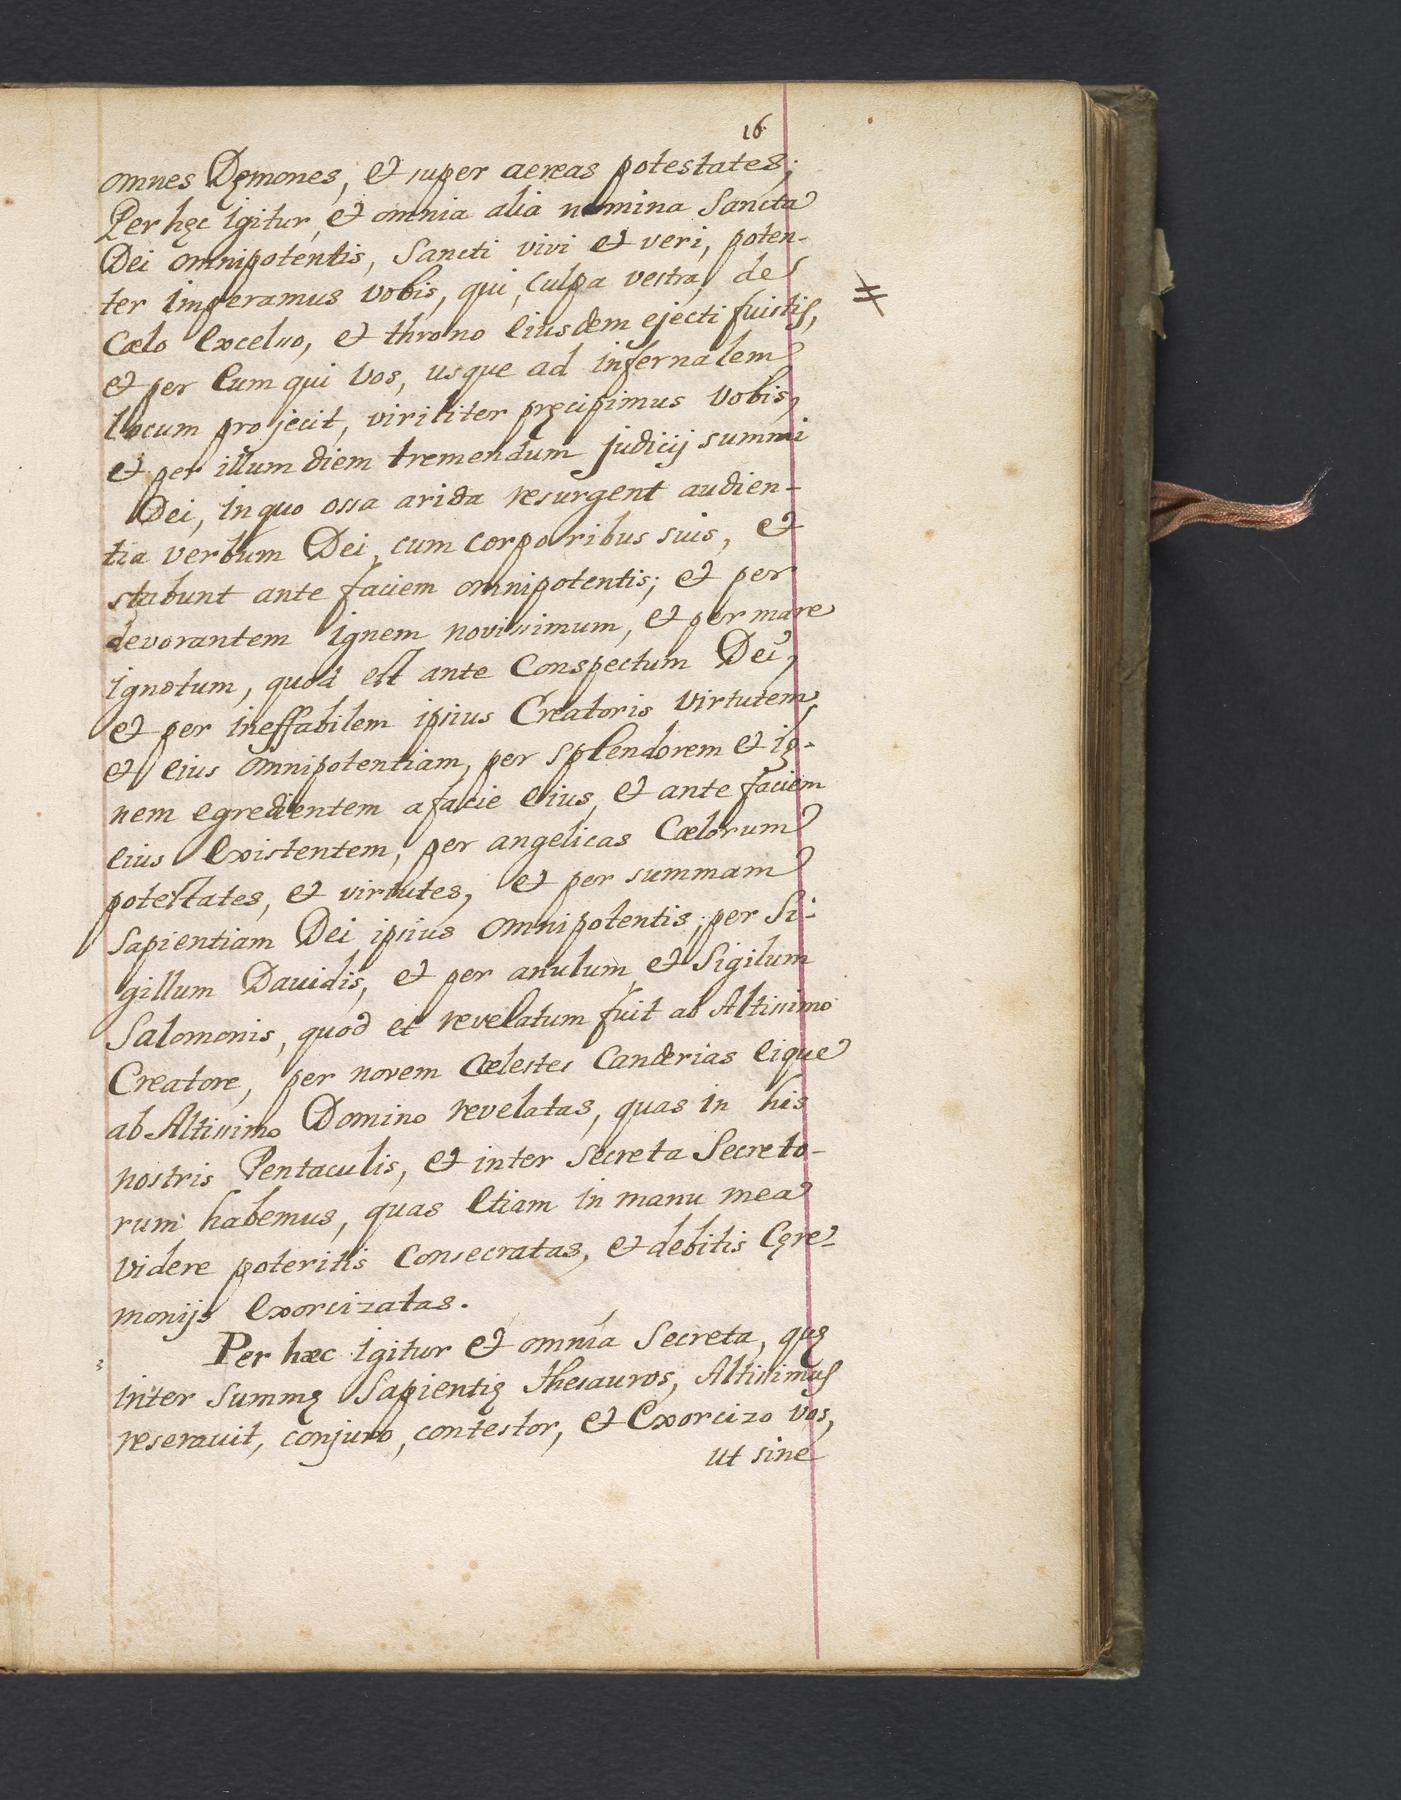 16
omnes Dęmones, et super aereas potestates;
Per hęc igitur, et omnia alia nomina Sancta
Dei omnipotentis, Sancti vivi et veri, poten-
ter imperamus vobis, qui, culpa vestra, de
Cœlo excelso, et throno eiusdem ejecti fuistis,
et per eum qui vos, usque ad infernalem
locum projecit, viriliter pręcipimus vobis,
et per illum diem tremendum judicij summi
Dei, in quo ossa arida resurgent audien-
tia verbum Dei, cum corporibus suis, et
stabunt ante faciem omnipotentis; et per
devorantem ignem novissimum, et per mare
ignotum, quod est ante Conspectum Dei,
et per ineffabilem ipsius Creatoris virtutem,
et eius omnipotentiam, per splendorem et ig-
nem egredientem a facie eius, et ante faciem
eius existentem, per angelicas Cœlorum
potestates, et virtutes, et per summam
sapientiam Dei ipsius omnipotentis; per Si-
gillum Dauidis, et per anulum et Sigilum
Salomonis, quod et revelatum fuit ab Altissimo
Creatore, per novem Cœlestes Canderias eique
ab Altissimo Domino revelatas, quas in his
nostris Pentaculis, et inter secreta Secreto-
rum habemus, quas etiam in manu mea
videre poteritis Consecratas, et debitis Cęre-
monijs exorcizatas.
Per hæc igitur et omnia Secreta, quę
inter summę Sapientię thesauros, Altissimus
reserauit, conjuro, contestor, et Exorcizo vos,
ut sine